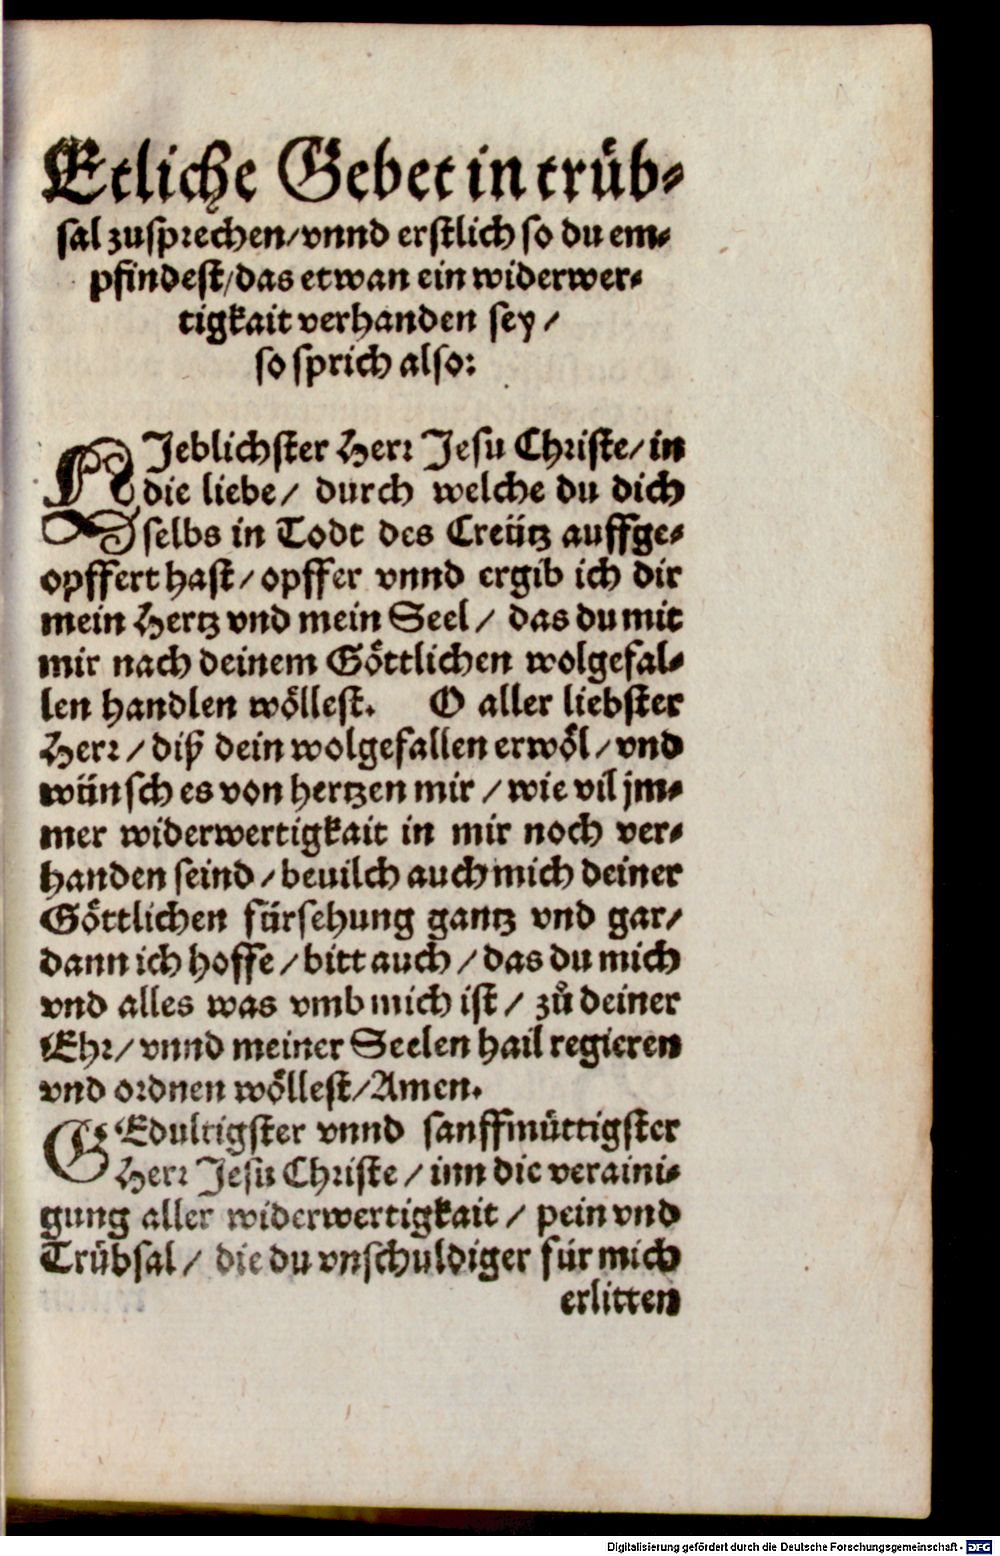 Etliche Gebet in trüb-
sal zusprechen/vnnd erstlich so du em-
pfindest/das etwan ein widerwer-
tigkait verhanden sey/
so sprich also:
LJeblichster Herr Jesu Christe/in
die liebe/ durch welche du dich
selbs in Todt des Creütz auffge-
opffert hast/opffer vnnd ergib ich dir
mein Hertz vnd mein Seel/ das du mit
mir nach deinem Göttlichen wolgefal-
len handlen wöllest. O aller liebster
Herr/diß dein wolgefallen erwöl/vnd
wünsch es von hertzen mir/wie vil jm-
mer widerwertigkait in mir noch ver-
handen seind/beuilch auch mich deiner
Göttlichen fürsehung gantz vnd gar/
dann ich hoffe/bitt auch/das du mich
vnd alles was vmb mich ist/ zů deiner
Ehr/vnnd meiner Seelen hail regieren
vnd ordnen wöllest/Amen.
GEdultigster vnnd sanffmüttigster
Herr Jesu Christe/inn die veraini-
gung aller widerwertigkait/ pein vnd
Trübsal/ die du vnschuldiger für mich
erlitten
Digitalisierung gefördert durch die Deutsche Forschungsgemeinschaft - DFG